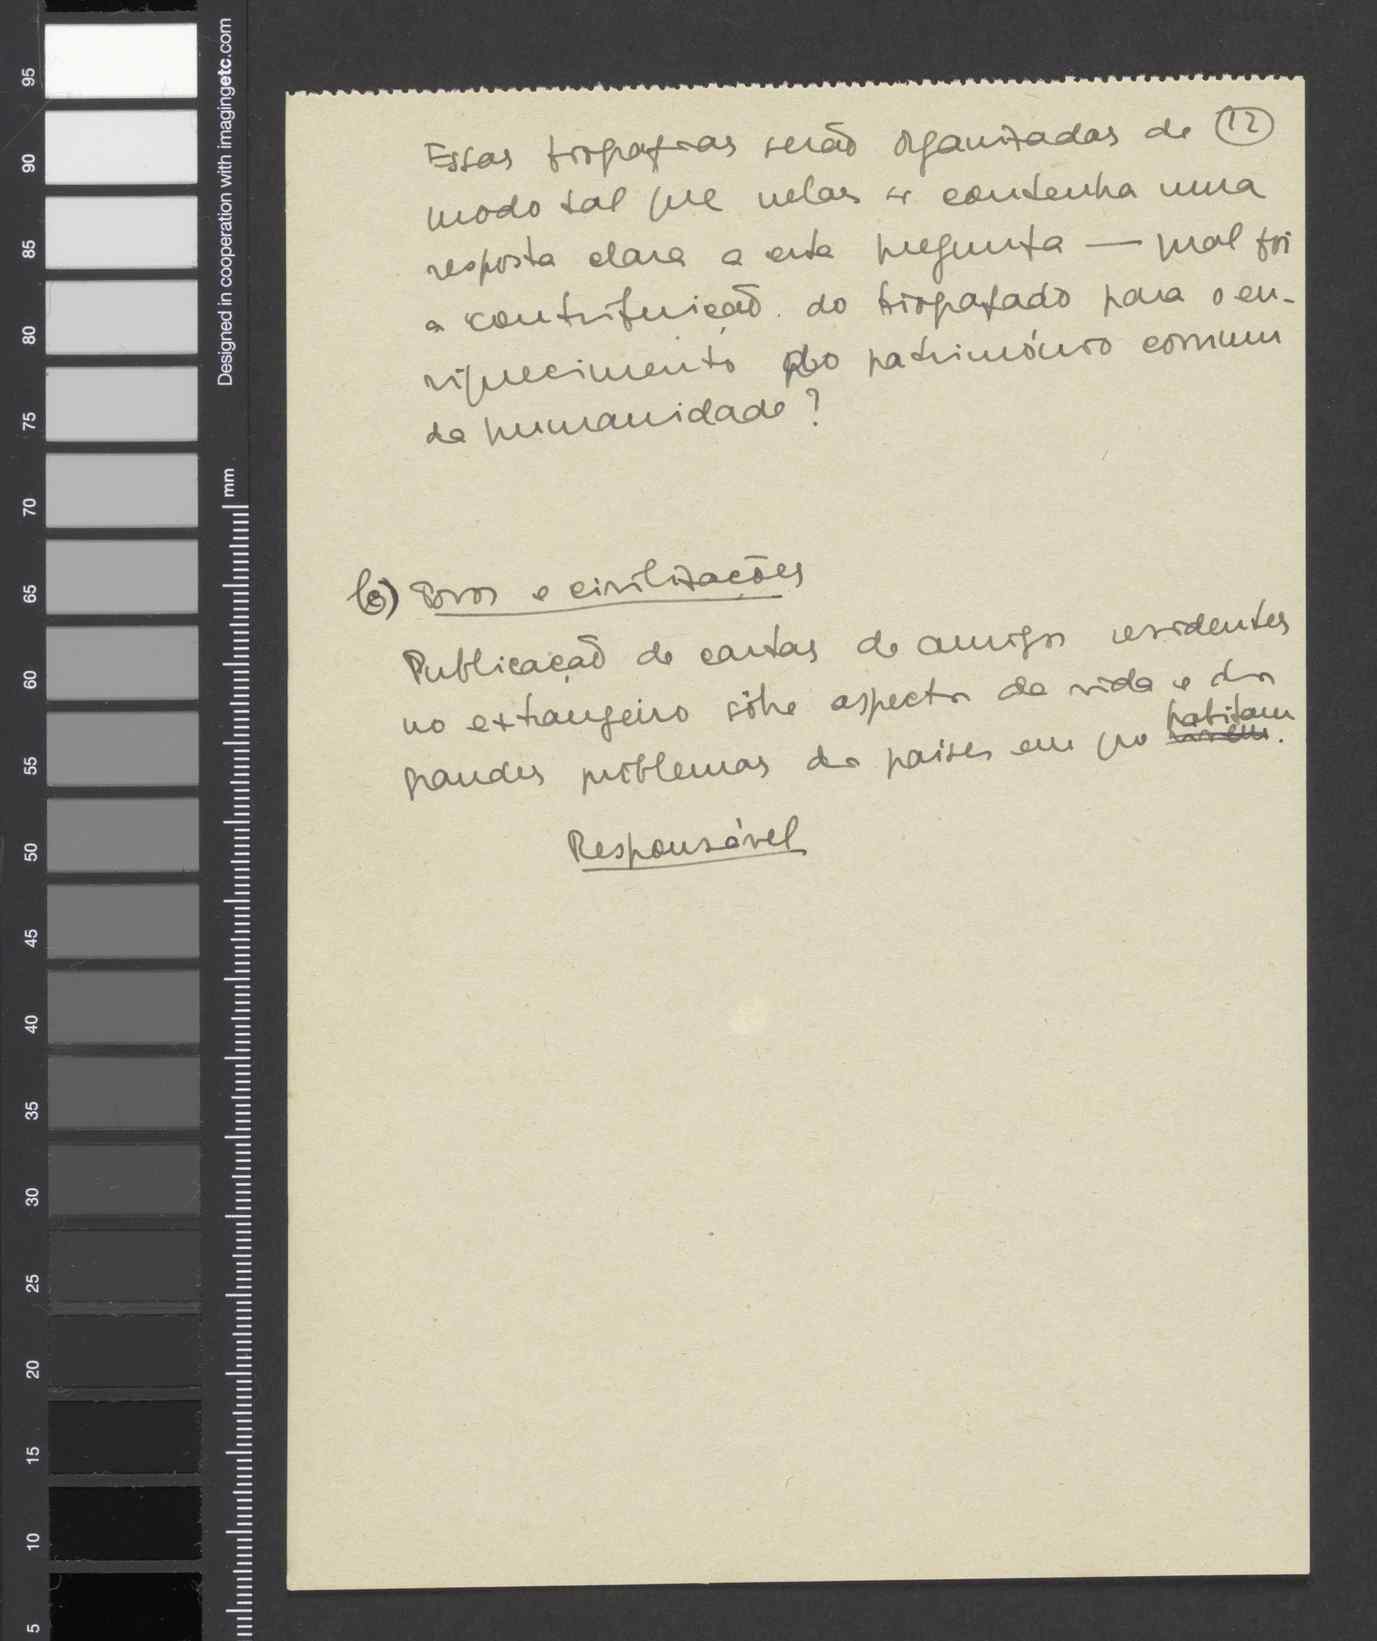 12
Essas biografias serão organizadas de
modo tal que nelas se contenha uma
resposta clara a esta pregunta — qual foi
a contribuição do biografado para o en-
riquecimento do património comum
da humanidade?
b) Povos e civilizações
Publicação de cartas de amigos residentes
no extrangeiro sôbre aspectos da vida e dos
grandes problemas dos países em que habitam.
Responsável
Designed in cooperation with imagingetc.com
mm
95
90
85
80
75
70
65
60
55
50
45
40
35
30
25
20
15
10
5